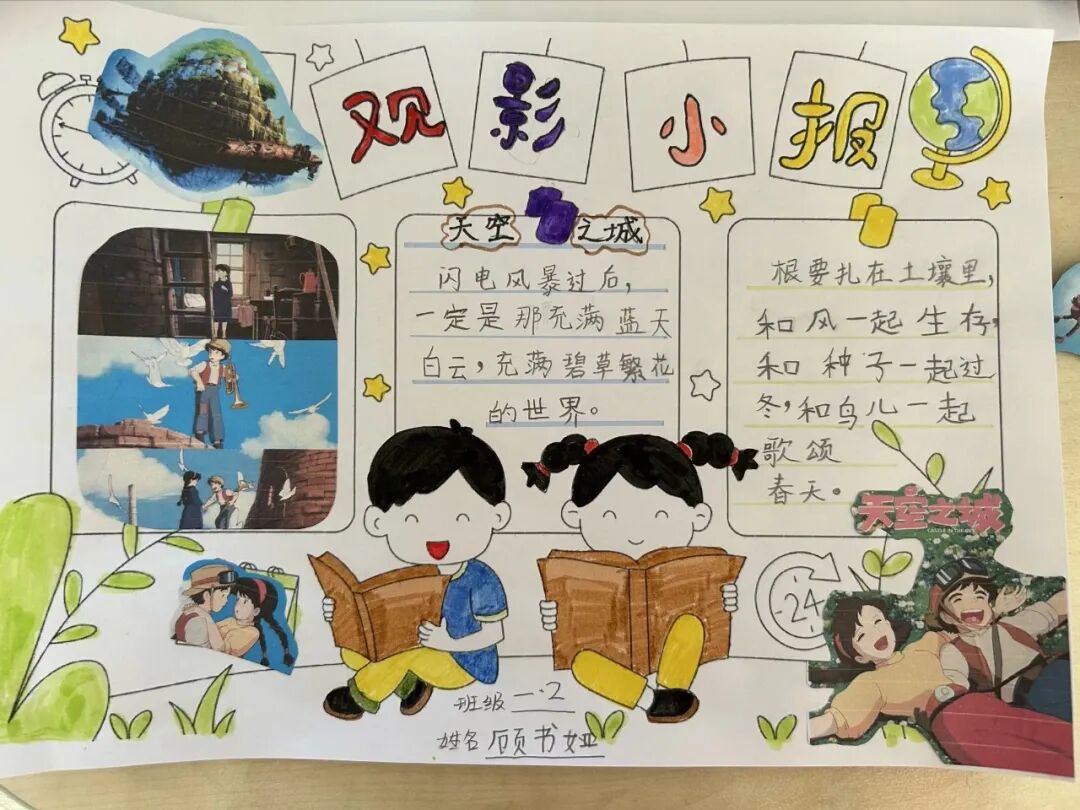 观影小报
天空之城
闪电风暴过后，
一定是那充满蓝天
白云，充满碧草繁花
的世界。
根要扎在土壤里，
和风一起生存，
和种子一起过
冬，和鸟儿一起
歌颂
春天。
天空之城
CASTLE IN THE SKY
24
班级一.2
姓名顾书娅